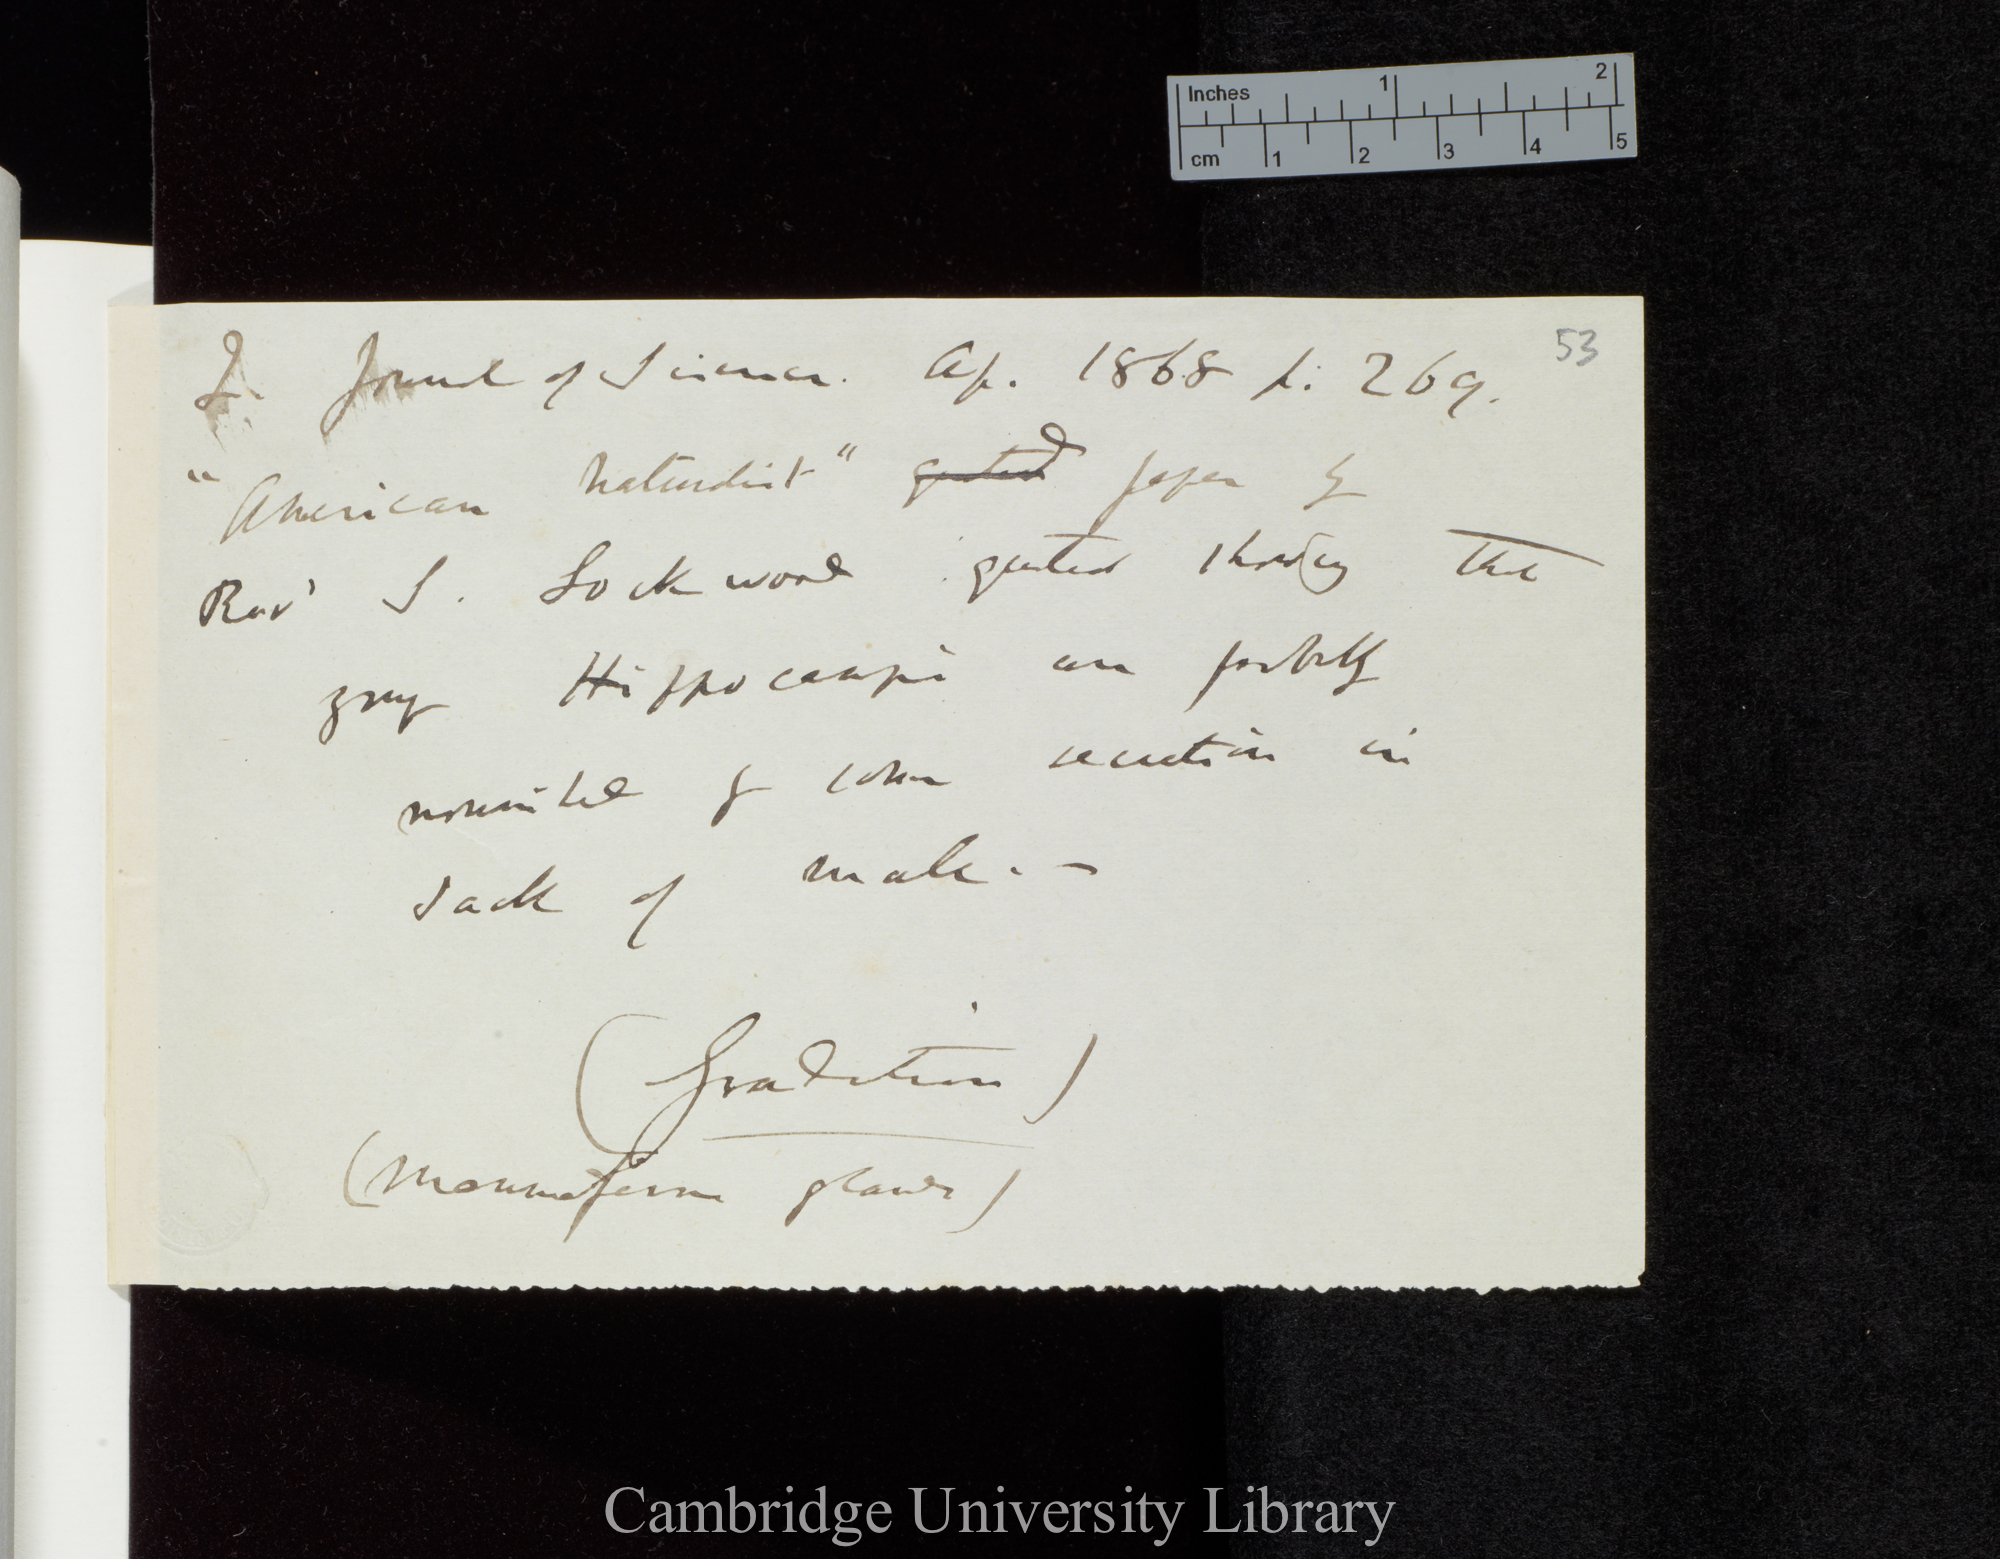 Inches 1 2
cm 1 2 3 4 5
53
Q. Journal of Science. Ap. 1868 p. 269.
"American Naturalist" quoted paper by
Revd S. Lockwood quoted showing that
young Hippocampi are probably
nourished by some secretion in
sack of male. —
(Gradation)
(Mammiform glands)
Cambridge University Library